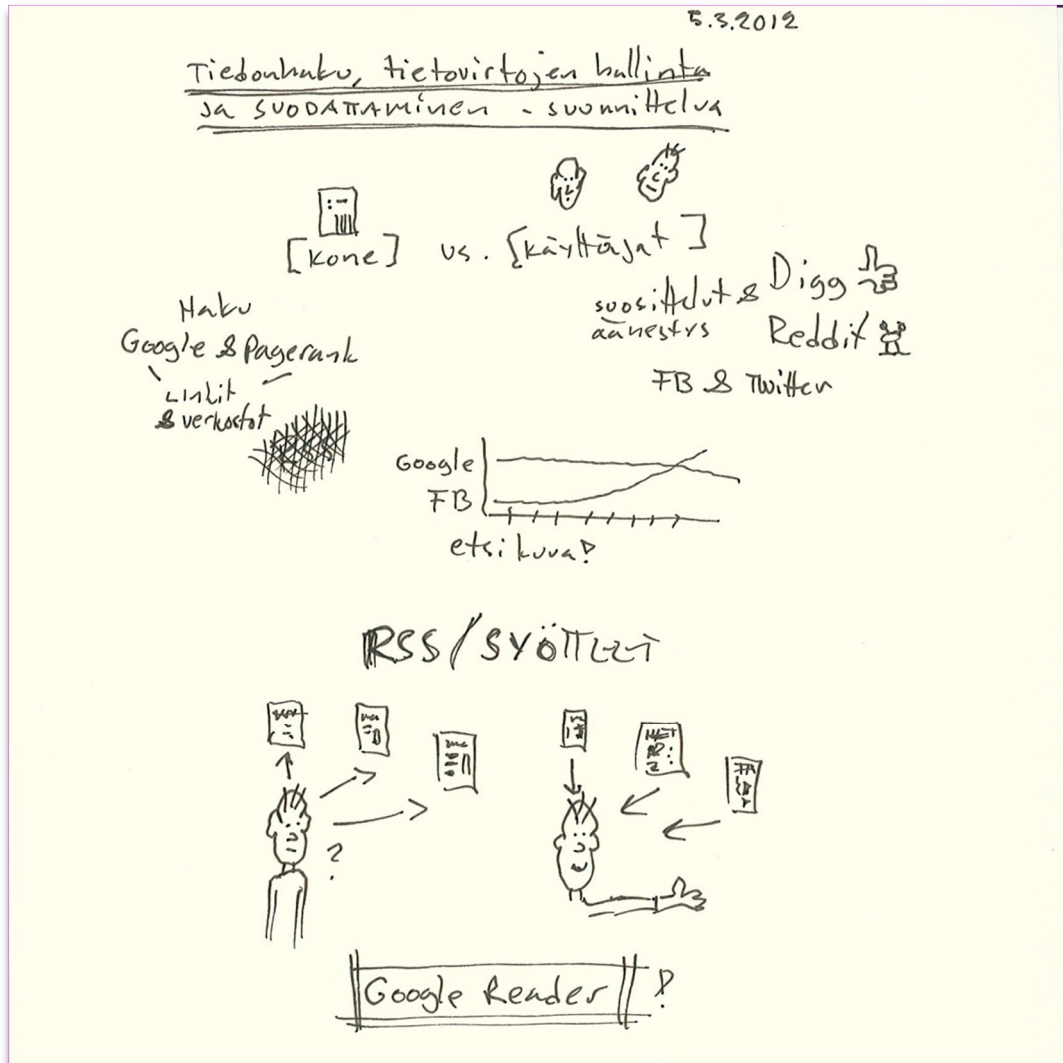 5.3.2012
Tiedonhaku, tietovirtojen hallinta
ja SUODATTAMINEN - suunnittelua
[kone] vs. [käyttäjät]
Haku
Google & Pagerank
Linkit
& verkostot
suosittelut &
äänestys
Digg
Reddit
FB & Twitter
Google
FB
etsi kuva!
RSS/SYÖTTEET
?
Google Reader !